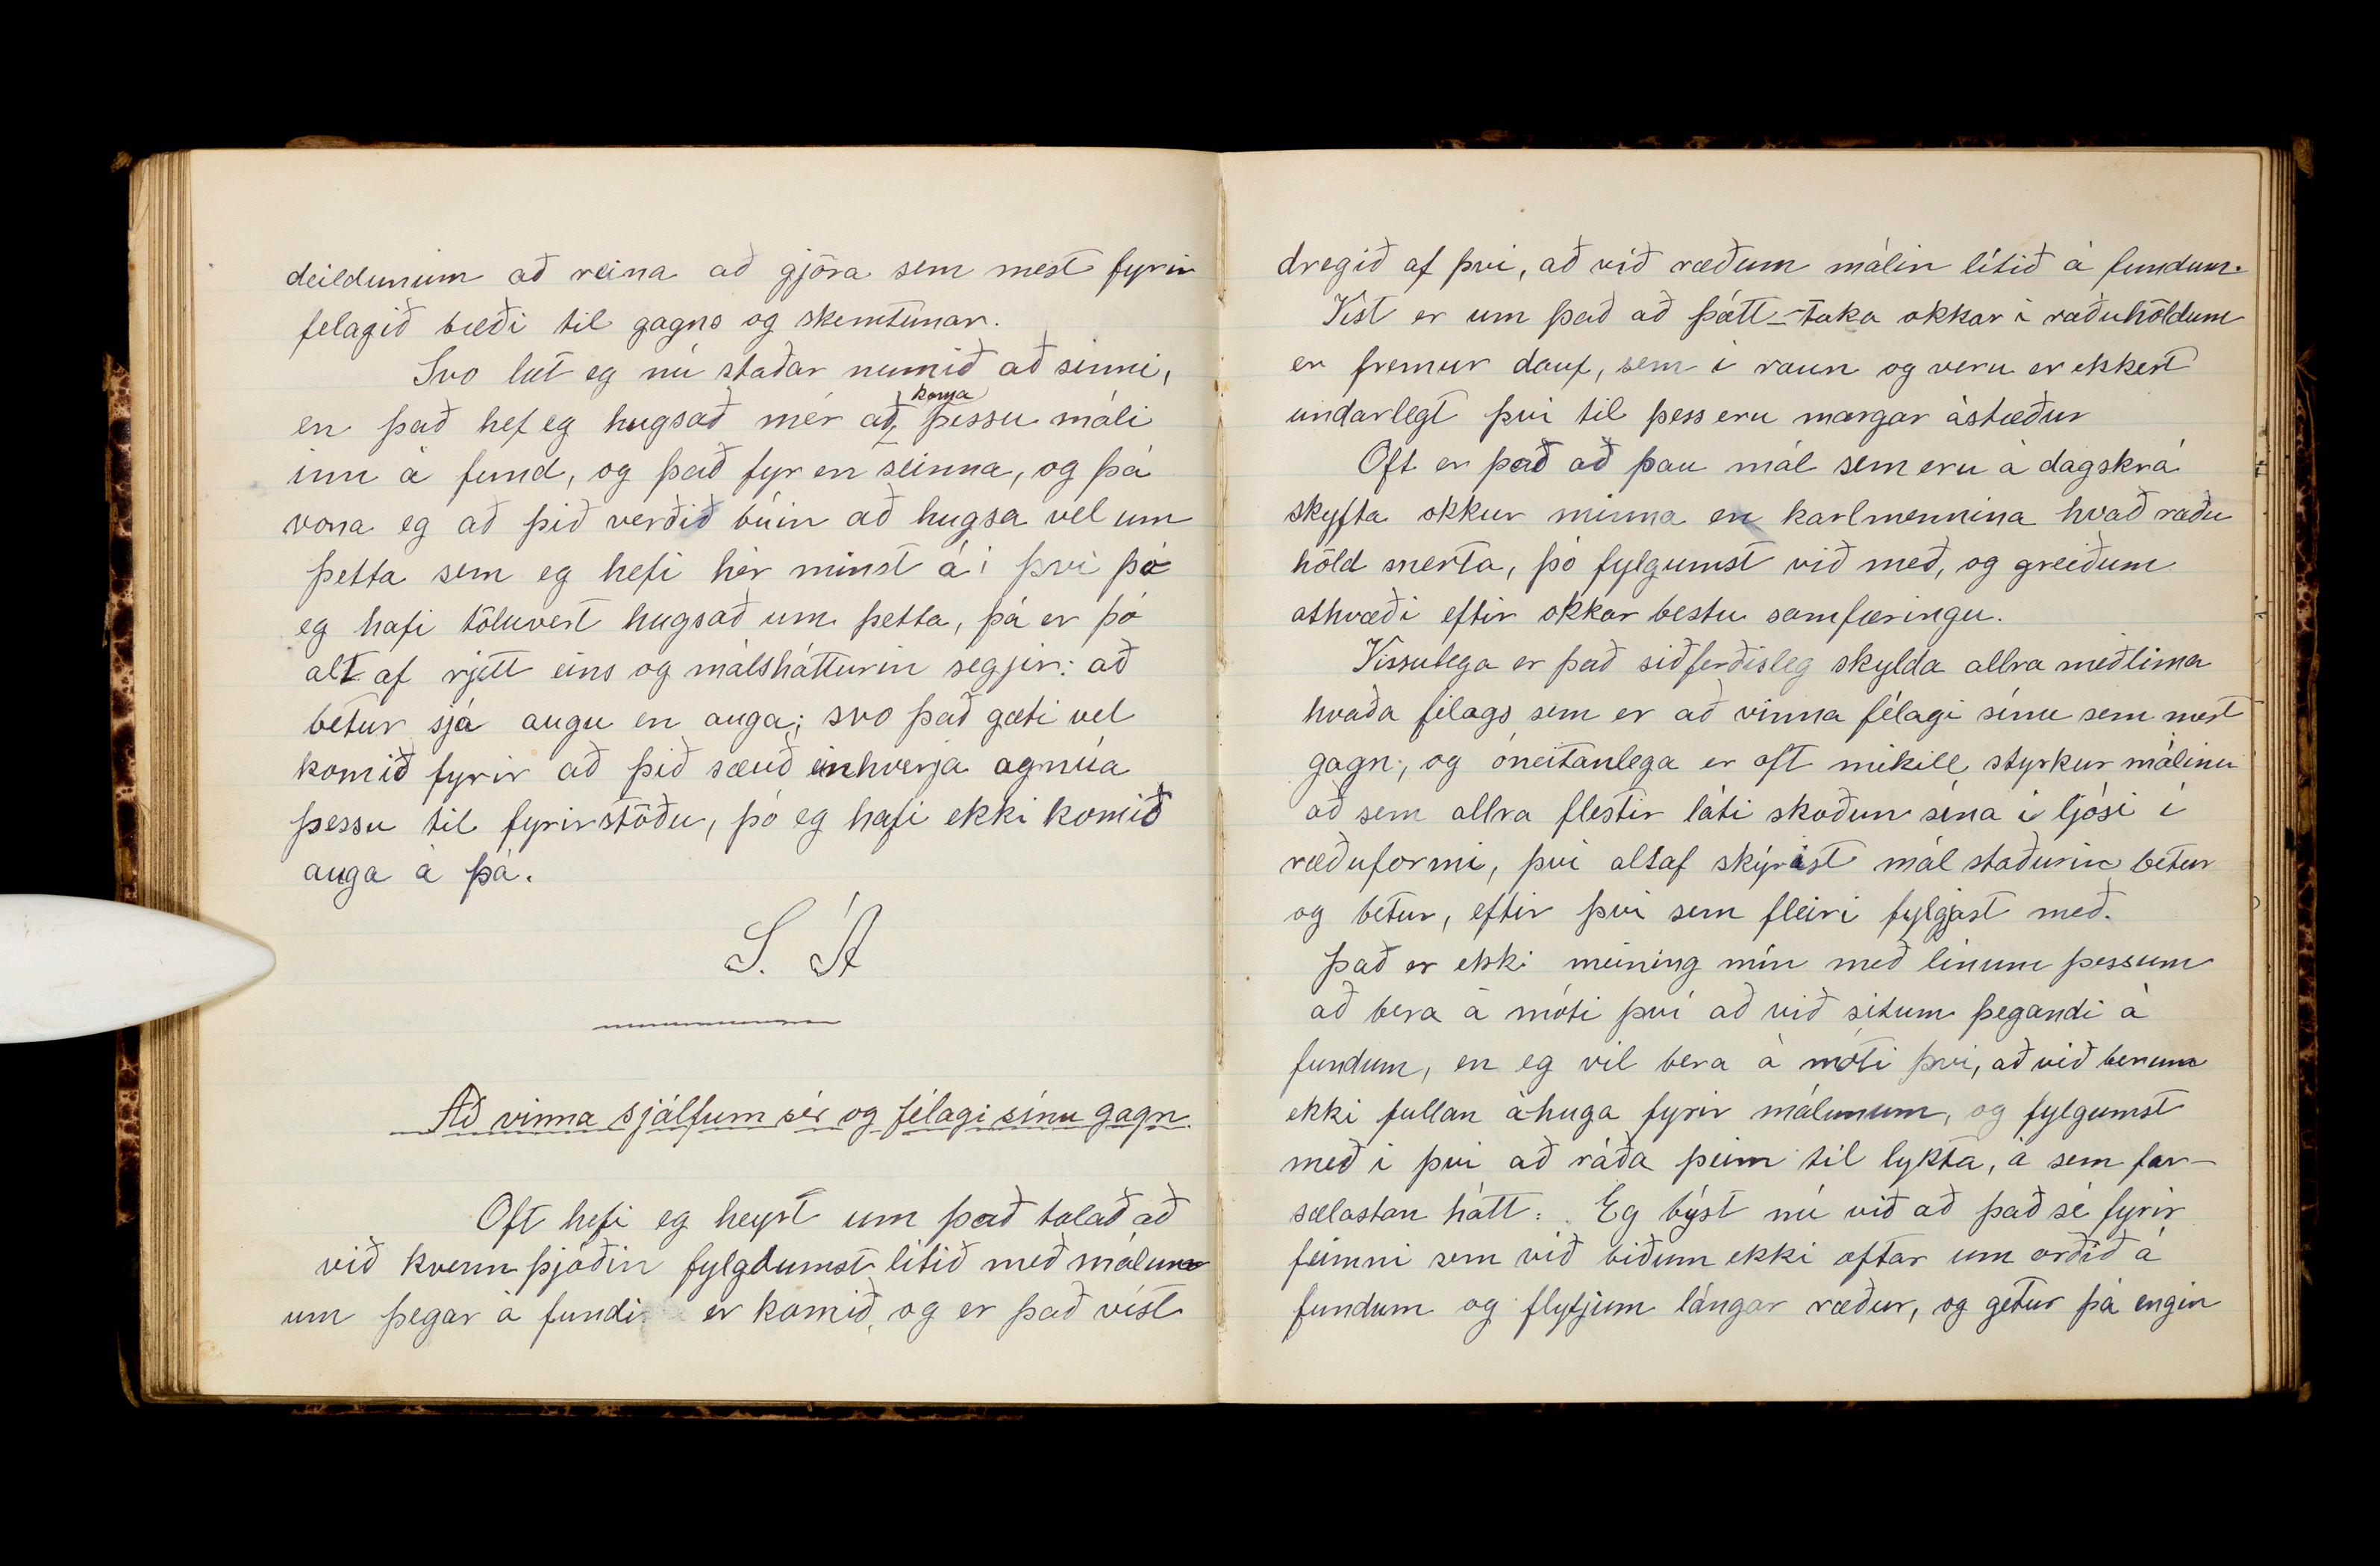 deildunum að reina að gjöra sem mest fyrir
felagið bæði til gagns og skemtunar.
Svo læt eg nú staðar numið að sinni,
en það hef eg hugsað mér að koma þessu máli
inn á fund, og það fyr en seinna, og þá
vona eg að þið verðið búin að hugsa vel um
þetta sem eg hefi hér minst á; því þó
eg hafi töluvert hugsað um þetta, þá er þó
alt af rjett eins og málshátturin segjir: að
betur sjá augu en auga; svo það gæti vel
komið fyrir að þið sæuð einhverja agnúa
þessu til fyrirstöðu, þó eg hafi ekki komið
auga á þá.
S. Á
Að vinna sjálfum sér og félagi sínu gagn.
Oft hefi eg heyrt um það talað að
við kvennþjóðin fylgdumst lítið með málun
um þegar á fundi er komið, og er það víst
dregið af því, að við ræðum málin lítið á fundum.
Vist er um það að þátt-taka okkar í ræðuhöldum
er fremur dauf, sem í raun og veru er ekkert
undarlegt því til þess eru margar ástæður
Oft er það að þau mál sem eru á dagskrá
skyfta okkur minna en karlmennina hvað ræðu
höld snerta, þó fylgumst við með, og greiðum
athvæði eftir okkar bestu samfæringu.
Vissulega er það siðferðisleg skylda allra meðlima
hvaða félags sem er að vinna félagi sínu sem mest
gagn, og óneitanlega er oft mikill styrkur málinu
að sem allra flestir láti skoðun sína í ljósi í
ræðuformi, því altaf skýrist málstaðurin betur
og betur, eftir því sem fleiri fylgjast með.
það er ekki meining mín með línum þessum
að bera á móti því að við situm þegandi á
fundum, en eg vil bera á móti því, að við berum
ekki fullan áhuga fyrir málunum, og fylgumst
með í því að ráða þeim til lykta, á sem far-
sælastan hátt. Eg býst nú við að það sé fyrir
feimni sem við biðum ekki oftar um orðið á
fundum og flytjum lángar ræður, og getur þá engin